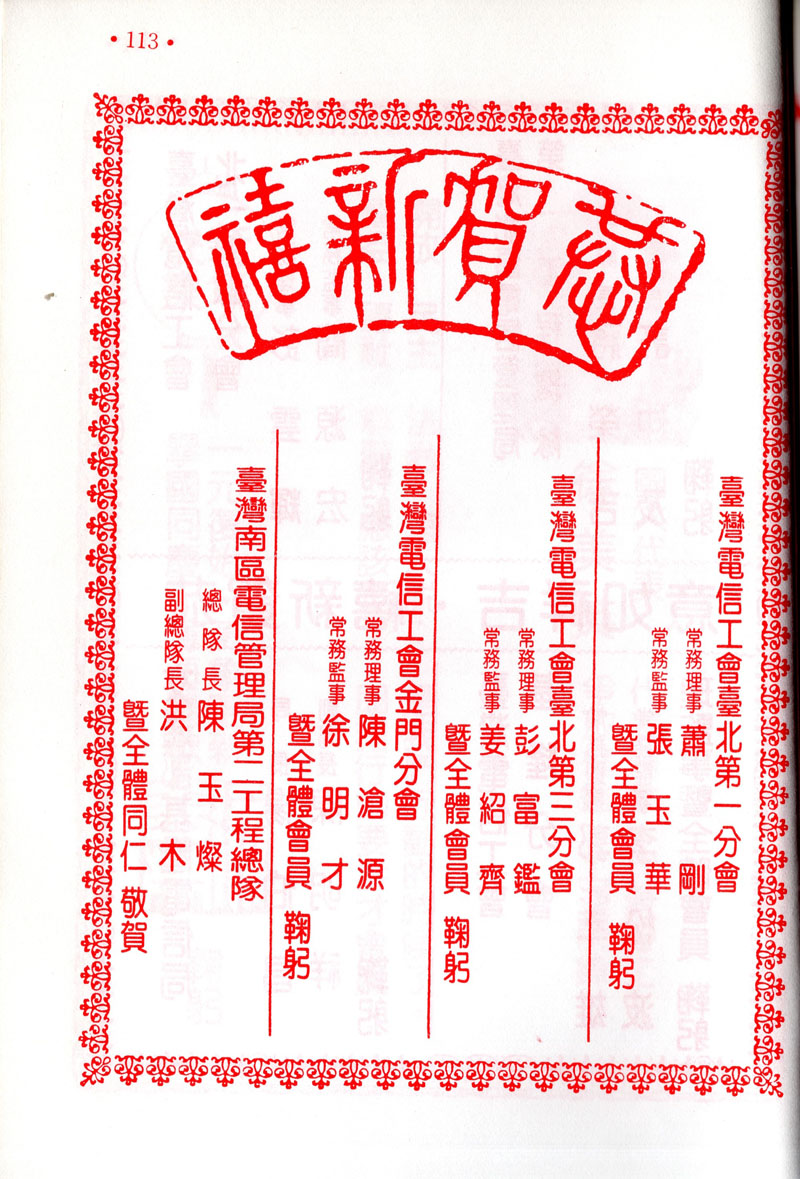 •113•
恭賀新禧
臺灣電信工會臺北第一分會
常務理事 蕭剛
常務監事 張玉華
暨全體會員 鞠躬
臺灣電信工會臺北第三分會
常務理事 彭富鑑
常務監事 姜紹齊
暨全體會員 鞠躬
臺灣電信工會金門分會
常務理事 陳滄源
常務監事 徐明才
暨全體會員 鞠躬
臺灣南區電信管理局第二工程總隊
總隊長 陳玉燦
副總隊長 洪木
暨全體同仁 敬賀